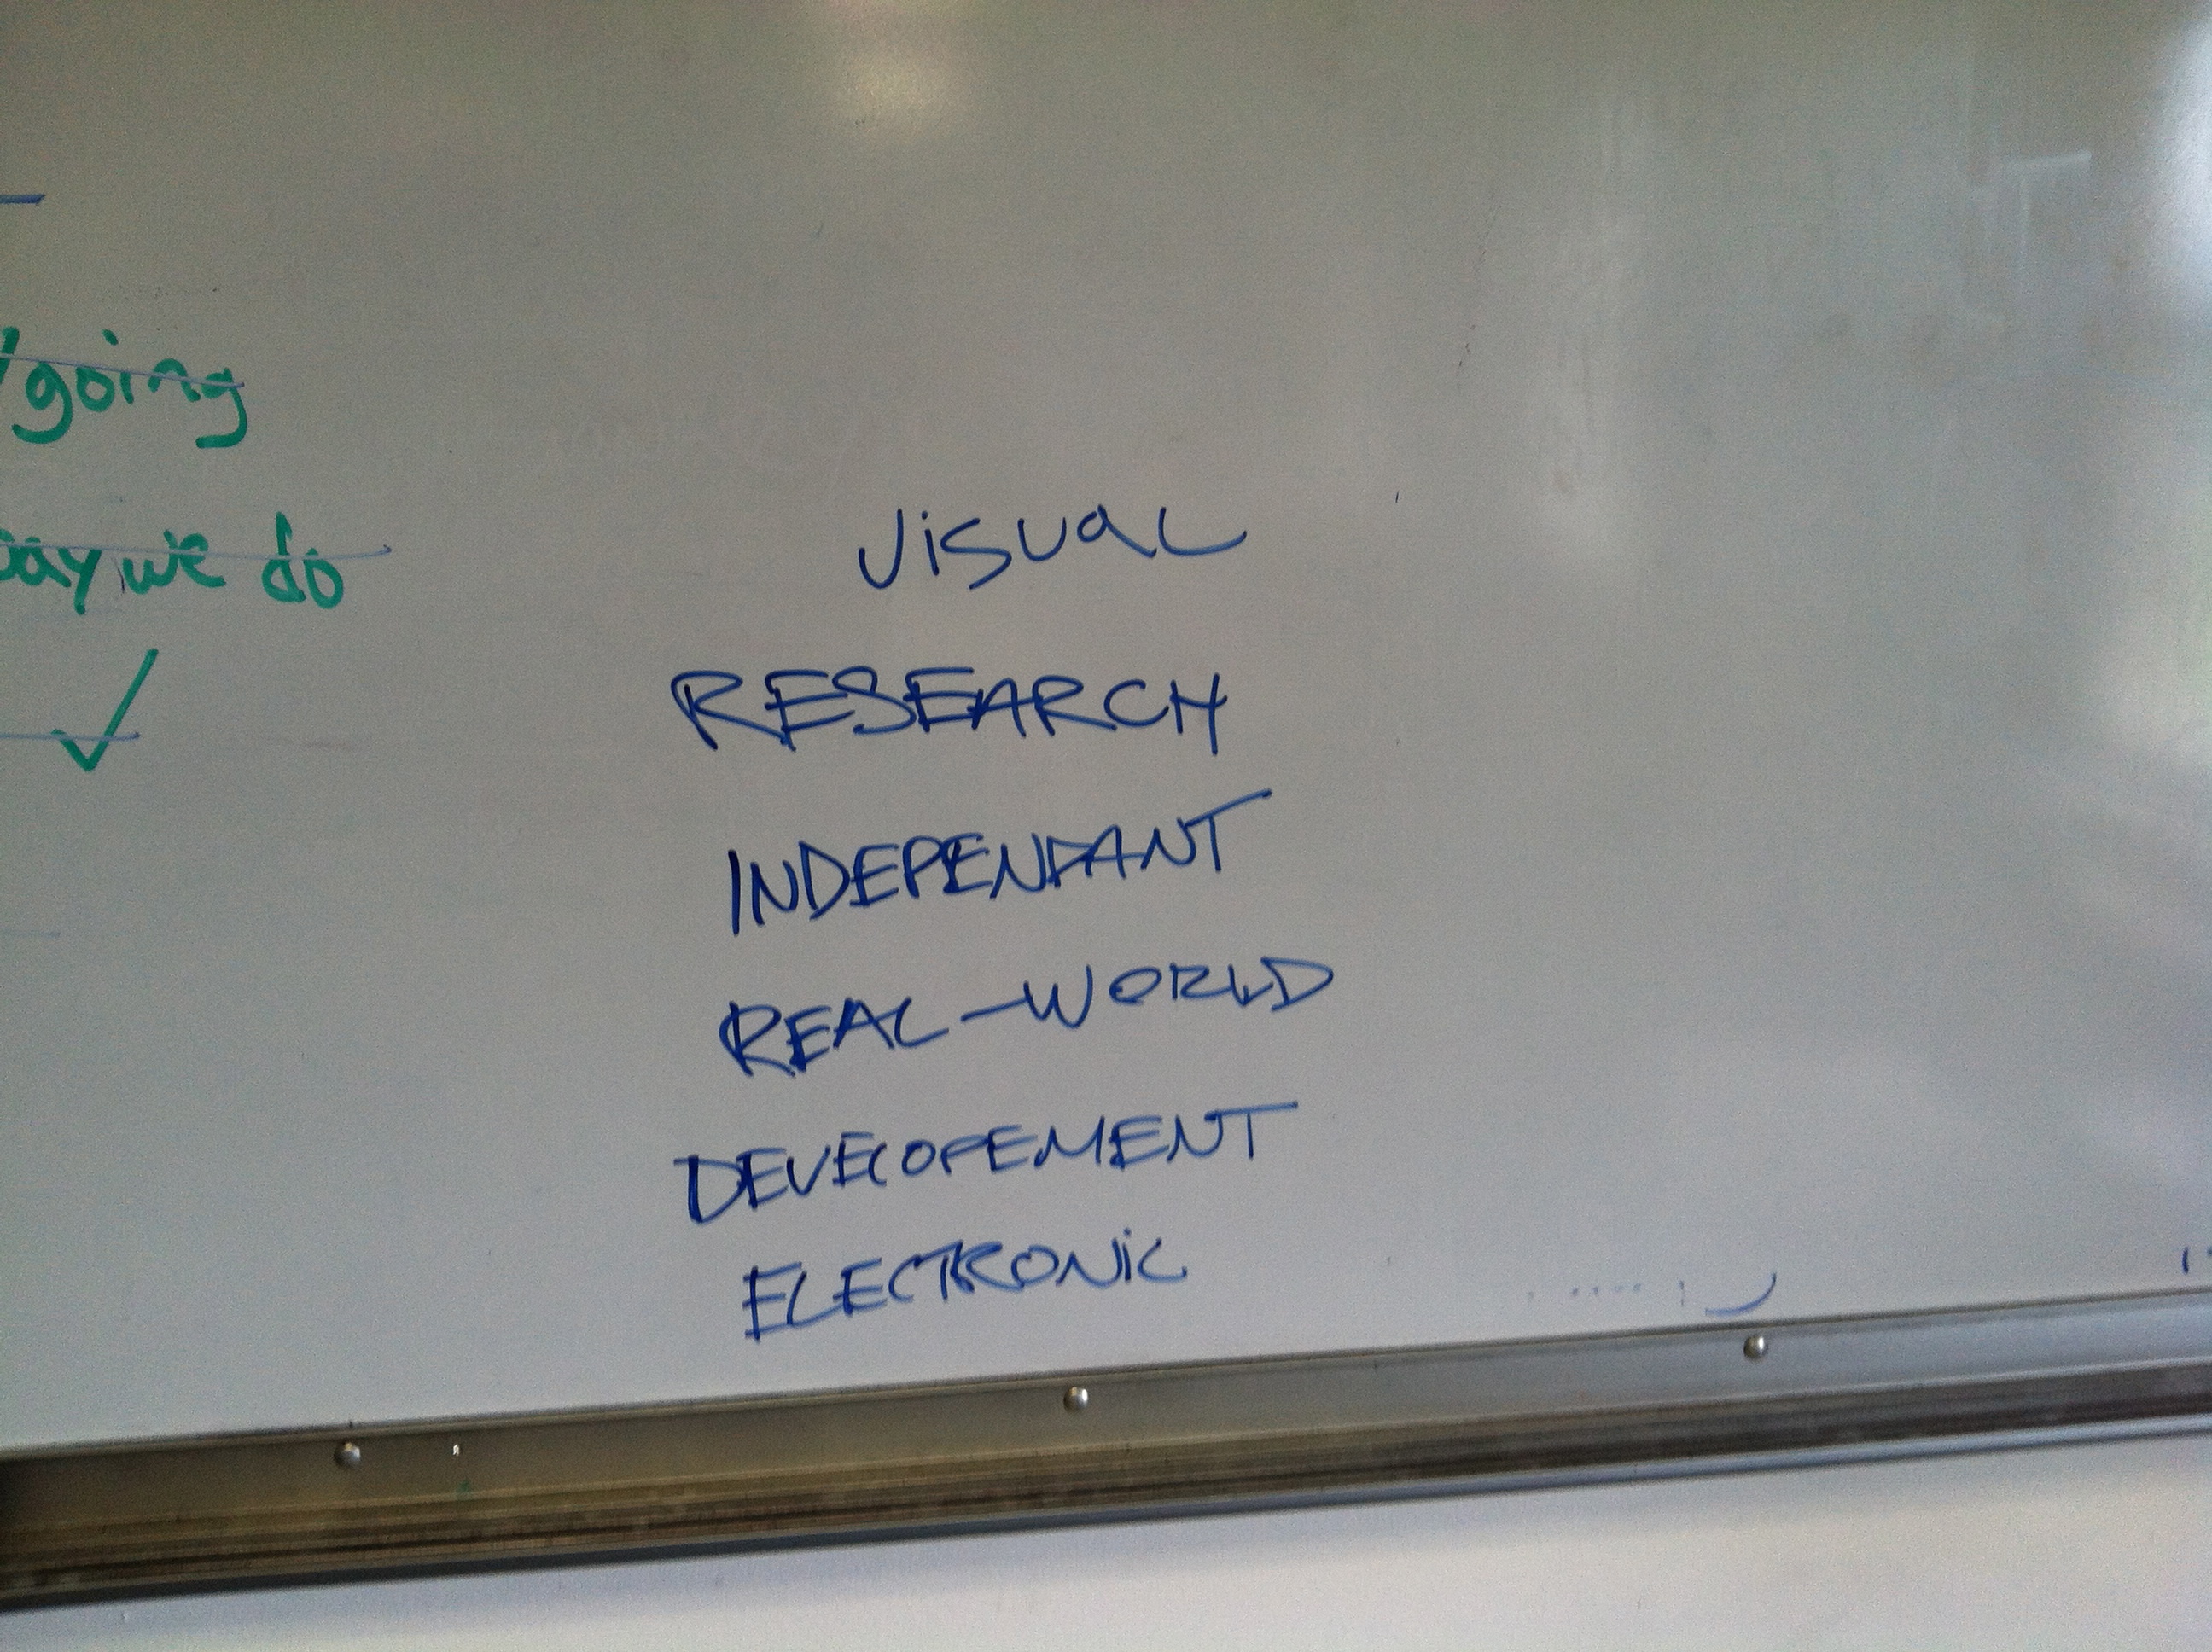 going
we do
Visual
RESEARCH
INDEPENDANT
REAL-WORLD
DEVELOPEMENT
ELECTRONIC